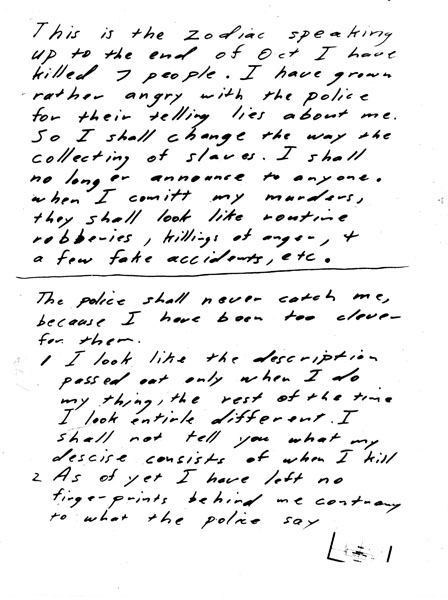 This is the zodiac speaking
up to the end of Oct I have
killed 7 people. I have grown
rather angry with the police
for their telling lies about me.
So I shall change the way the
collecting of slaves. I shall
no longer announce to anyone.
when I comitt my murders,
they shall look like routine
robberies, killings of anger, +
a few fake accidents, etc.
The police shall never catch me,
because I have been too clever
for them.
1 I look like the description
passed out only when I do
my thing, the rest of the time
I look entirle different. I
shall not tell you what my
descise consists of when I kill
2 As of yet I have left no
fingerprints behind me contrary
to what the police say